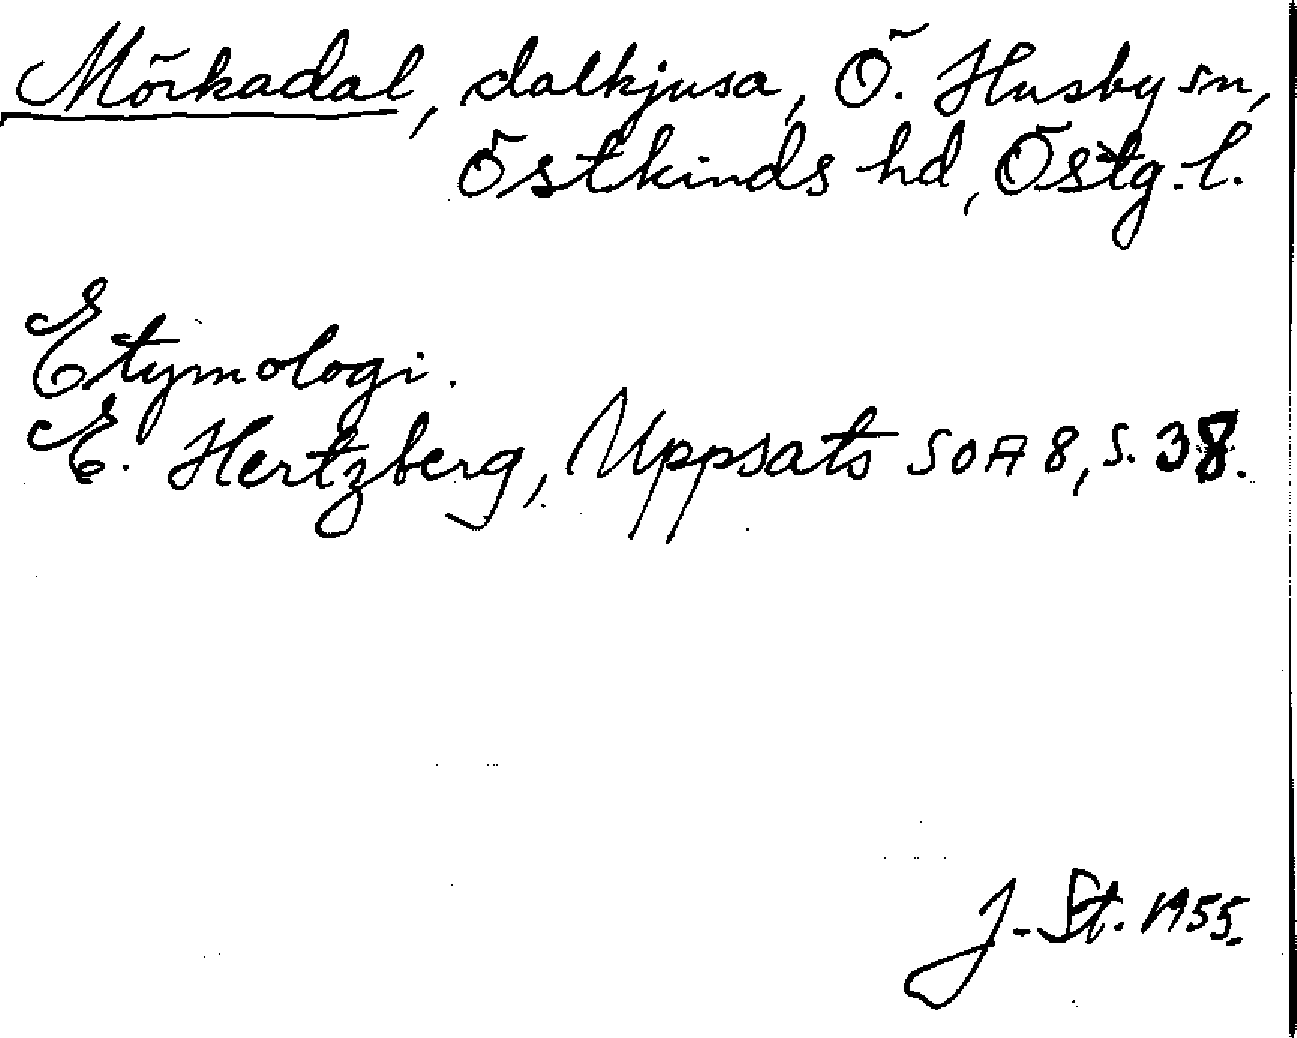 Mörkadal, dalkjusa, Ö. Husby sn,
Östkinds hd, Östg.l.
Etymologi.
E. Hertzberg, Uppsats SOA 8, s. 38.
J. St. 1955.